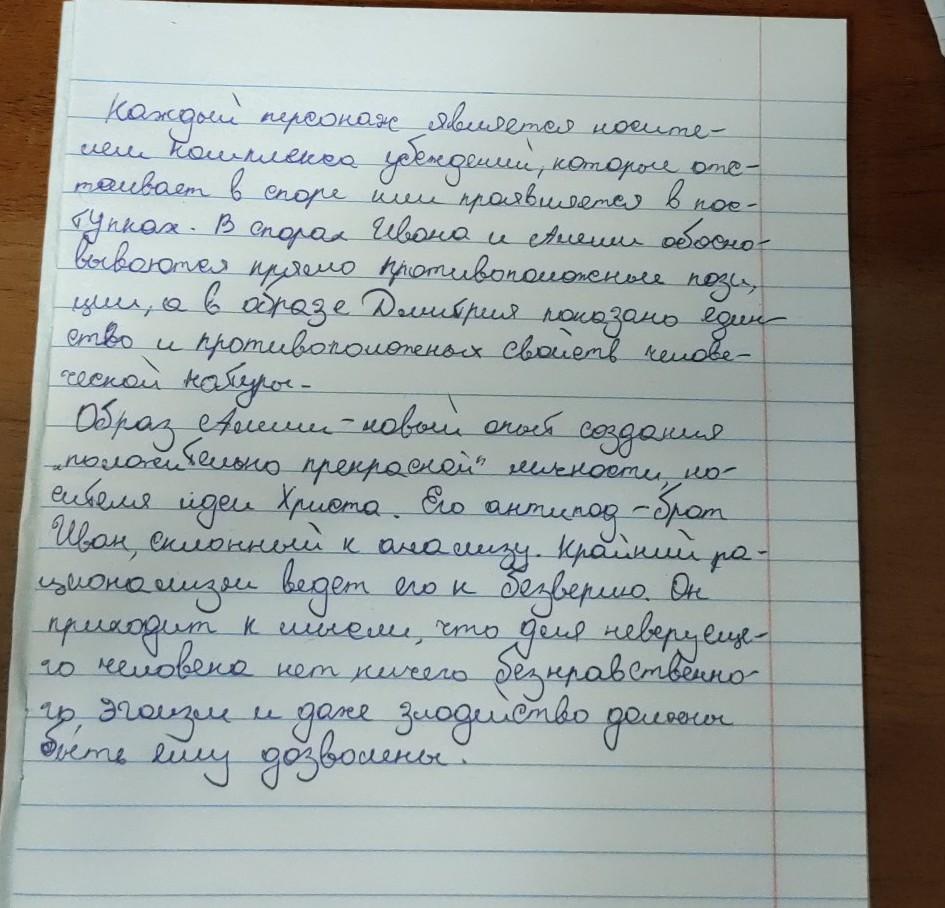 Каждый персонаж является носите-
лем комплекса убеждений, которые отс-
таивает в споре или проявляется в пос-
тупках. В спорах Ивана и Алеши обосно-
вываются прямо противоположные пози,
ции, а в образе Дмитрия показано един-
ство и противоположных свойств челове-
ческой натуры-
Образ Алеши - новый опыт создания
„положительно прекрасной" личности, но-
сителя идеи Христа. Его антипод - брат
Иван, склонный к анализу. Крайний ра-
ционализм ведет его к безверию. Он
приходит к мысли, что для неверующе-
го человека нет ничего безнравственно-
го, эгоизм и даже злодейство должны
быть ему дозволены.